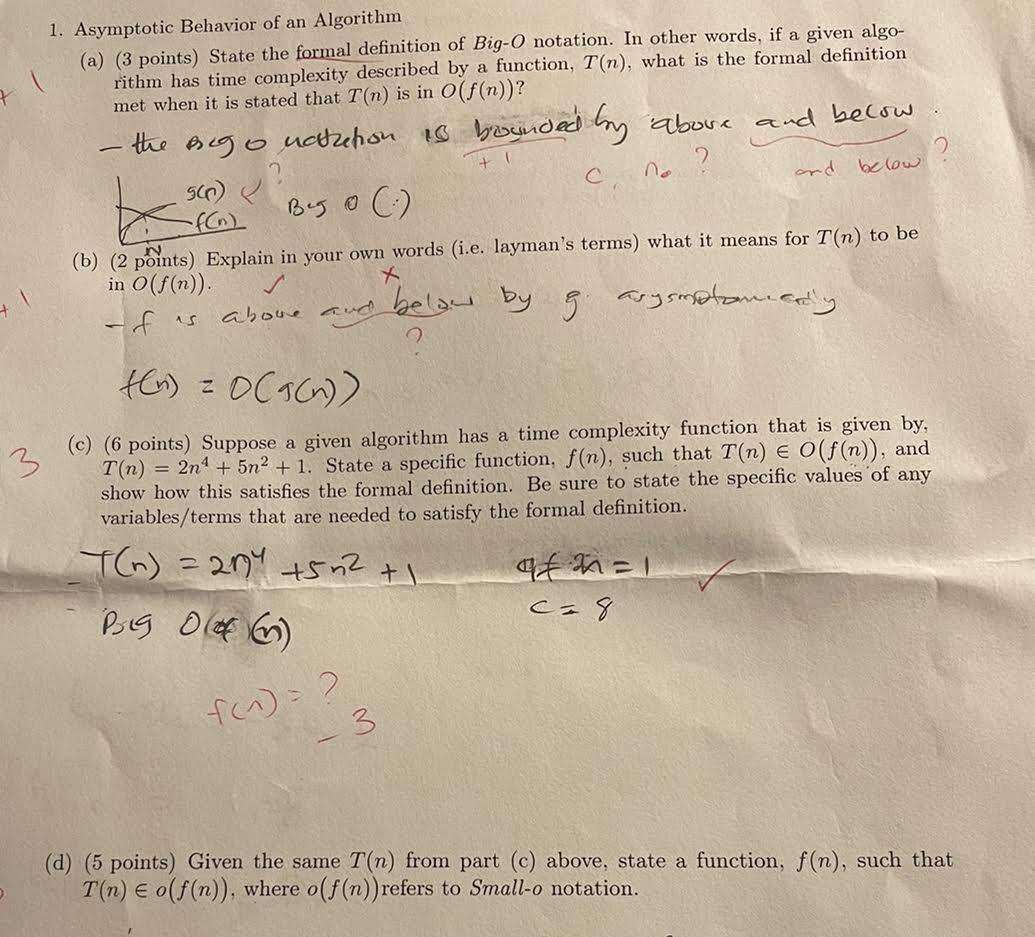 1. Asymptotic Behavior of an Algorithm
(a) (3 points) State the formal definition of Big-O notation. In other words, if a given algo-
rithm has time complexity described by a function, T(n), what is the formal definition
met when it is stated that T(n) is in O(f(n))?
+ 1
- the Big O notation is bounded by above and below.
+1
c, n₀ ?
and below ?
g(n) ?
f(n)
N
Big O (·)
(b) (2 points) Explain in your own words (i.e. layman's terms) what it means for T(n) to be
in O(f(n)).
+ 1
✓ x
- f is above and below by g
?
f(n) = O(g(n))
(c) (6 points) Suppose a given algorithm has a time complexity function that is given by,
3
T(n) = 2n⁴ + 5n² + 1. State a specific function, f(n), such that T(n) ∈ O(f(n)), and
show how this satisfies the formal definition. Be sure to state the specific values of any
variables/terms that are needed to satisfy the formal definition.
- T(n) = 2n⁴ + 5n² + 1
n = 1 ✓
c = 8
- Big O (n)
f(n) = ?
- 3
(d) (5 points) Given the same T(n) from part (c) above, state a function, f(n), such that
T(n) ∈ o(f(n)), where o(f(n))refers to Small-o notation.